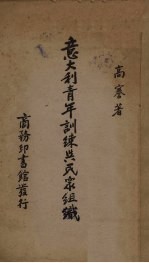 高蹇著
意大利青年訓練與民眾組織
商務印書館發行